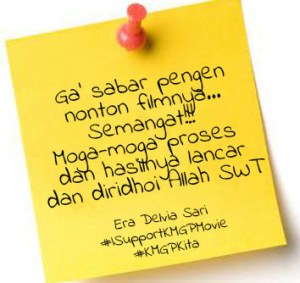 Ga' sabar pengen
nonton filmnya...
Semangat!!!
Moga-moga proses
dan hasilnya lancar
dan diridhoi Allah SWT
Era Delvia Sari
#ISupportKMGPMovie
#KMGPKita